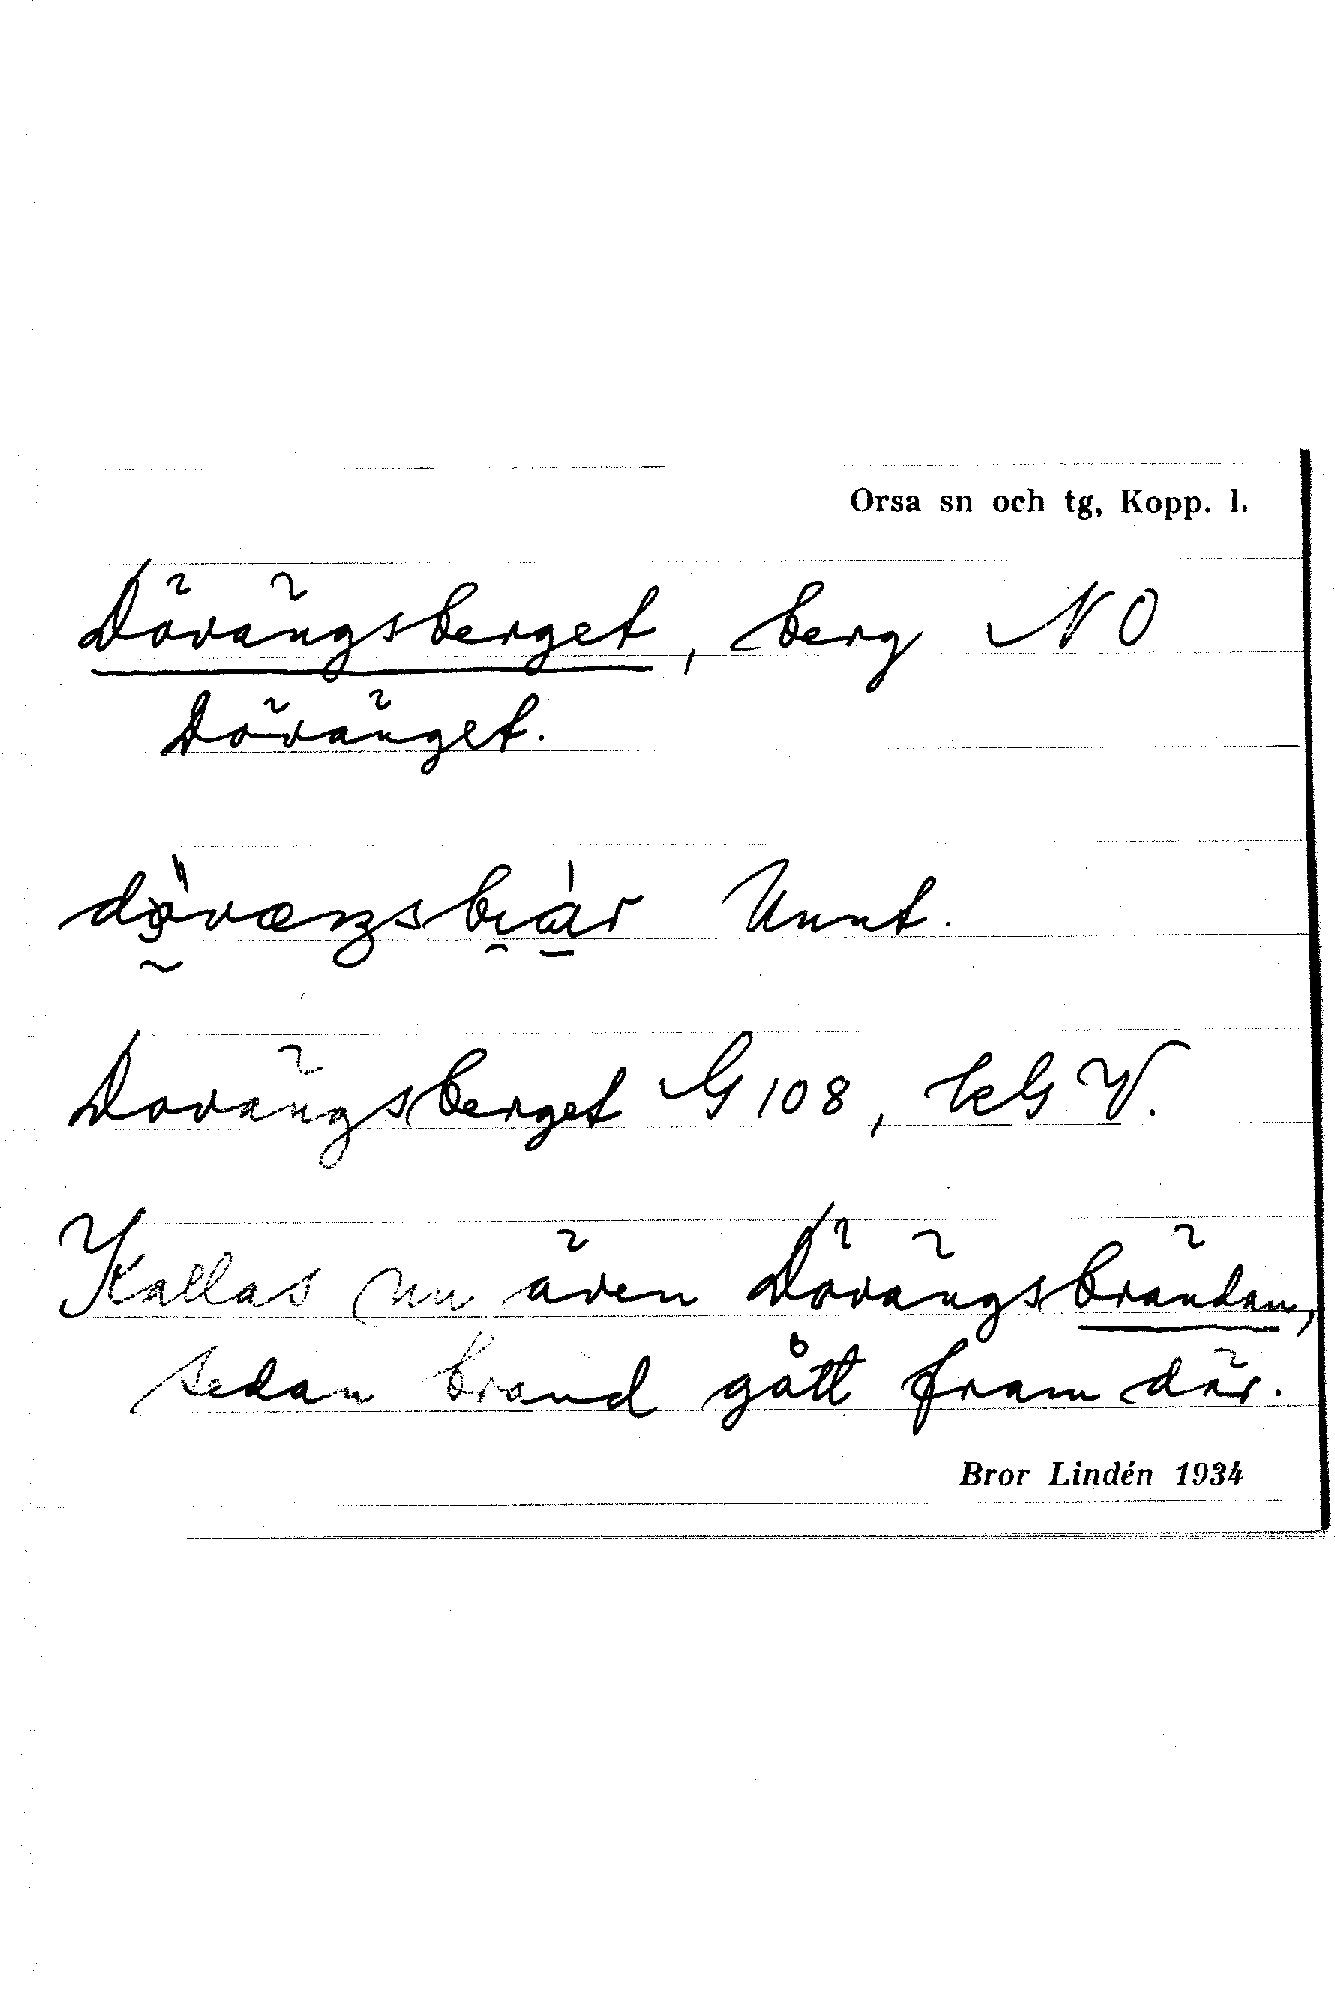 Orsa sn och tg, Kopp. l.
Dövängsberget, berg NO
Dövänget.
Unnt.
Dovängsberget G 108, kG V.
Kallas nu även Dövängsbrändan,
sedan brand gått fram där.
Bror Lindén 1934